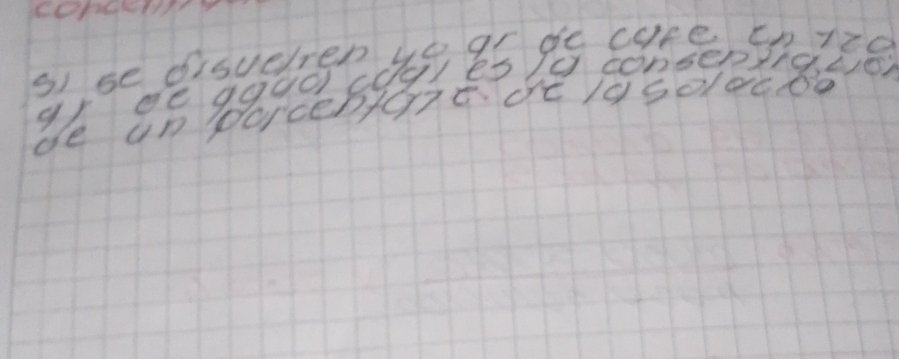 si se disuelven 40 gr de cafe en 120
gr de agua cual es la consentracion
de un porcentaje de la solocion